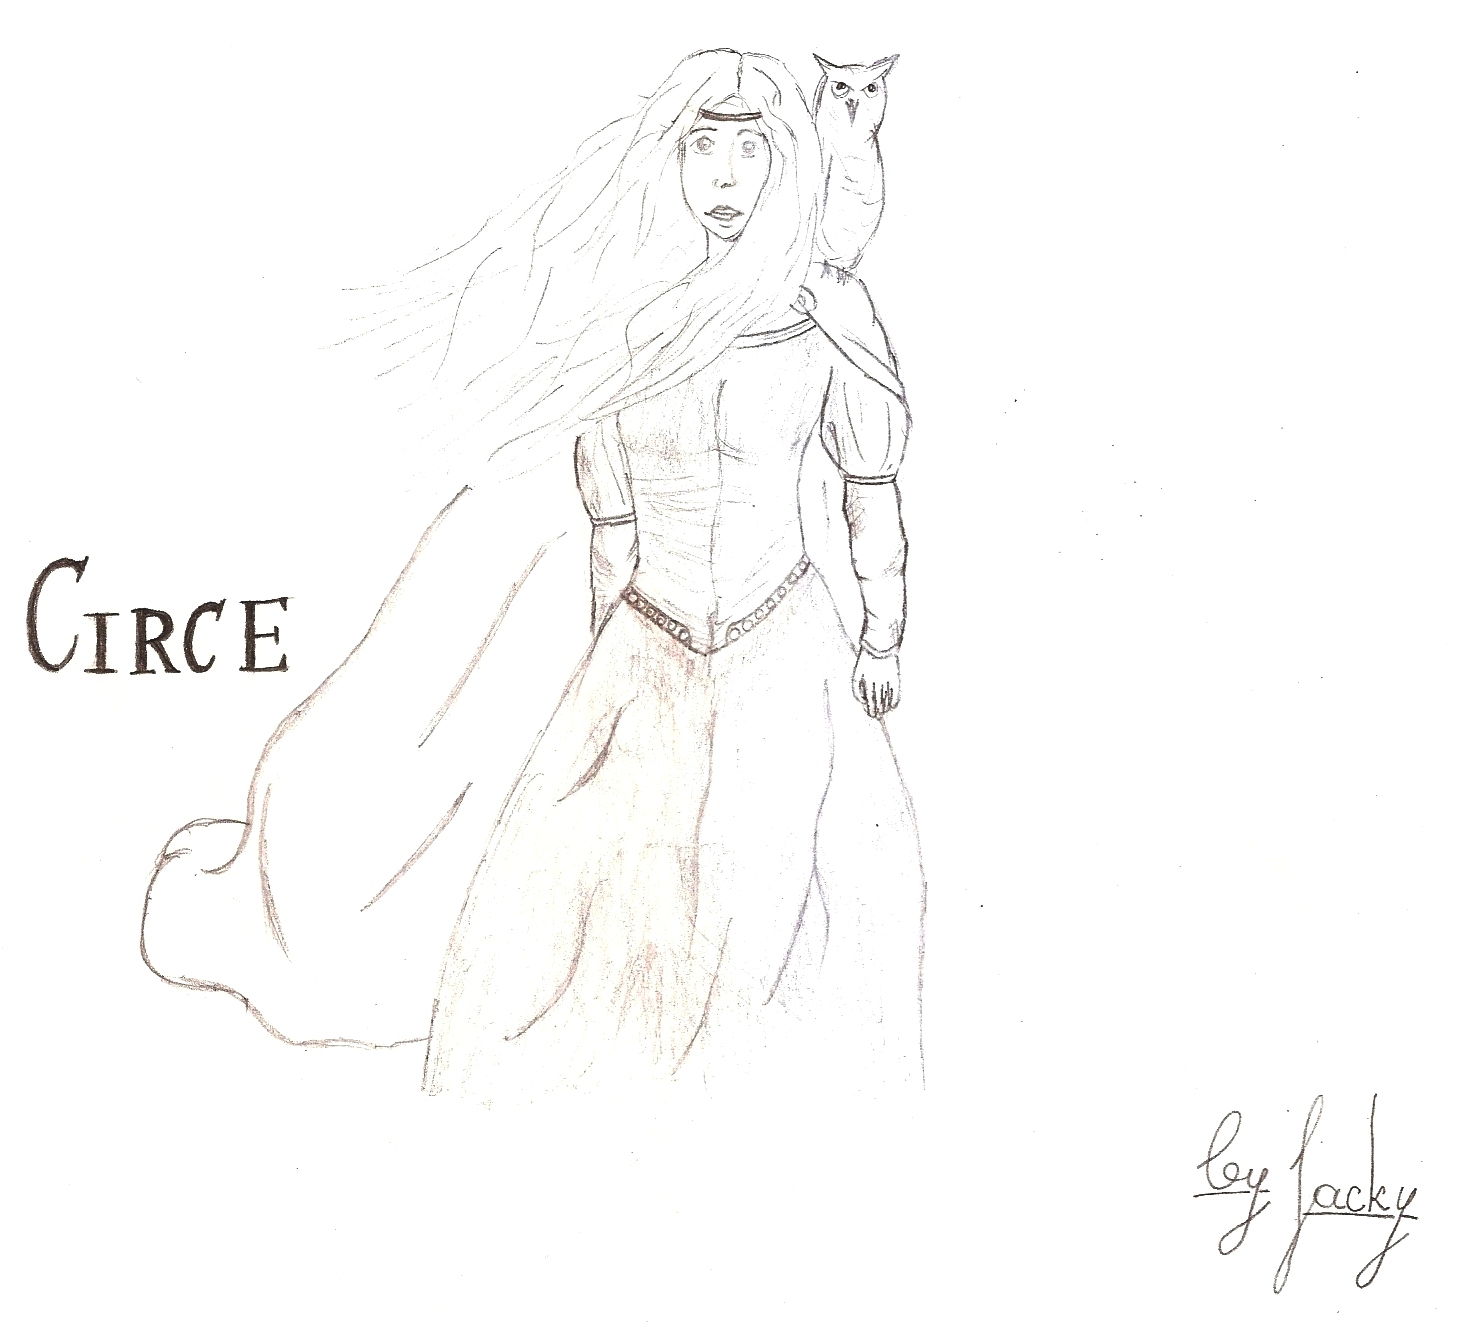 CIRCE
by Jacky